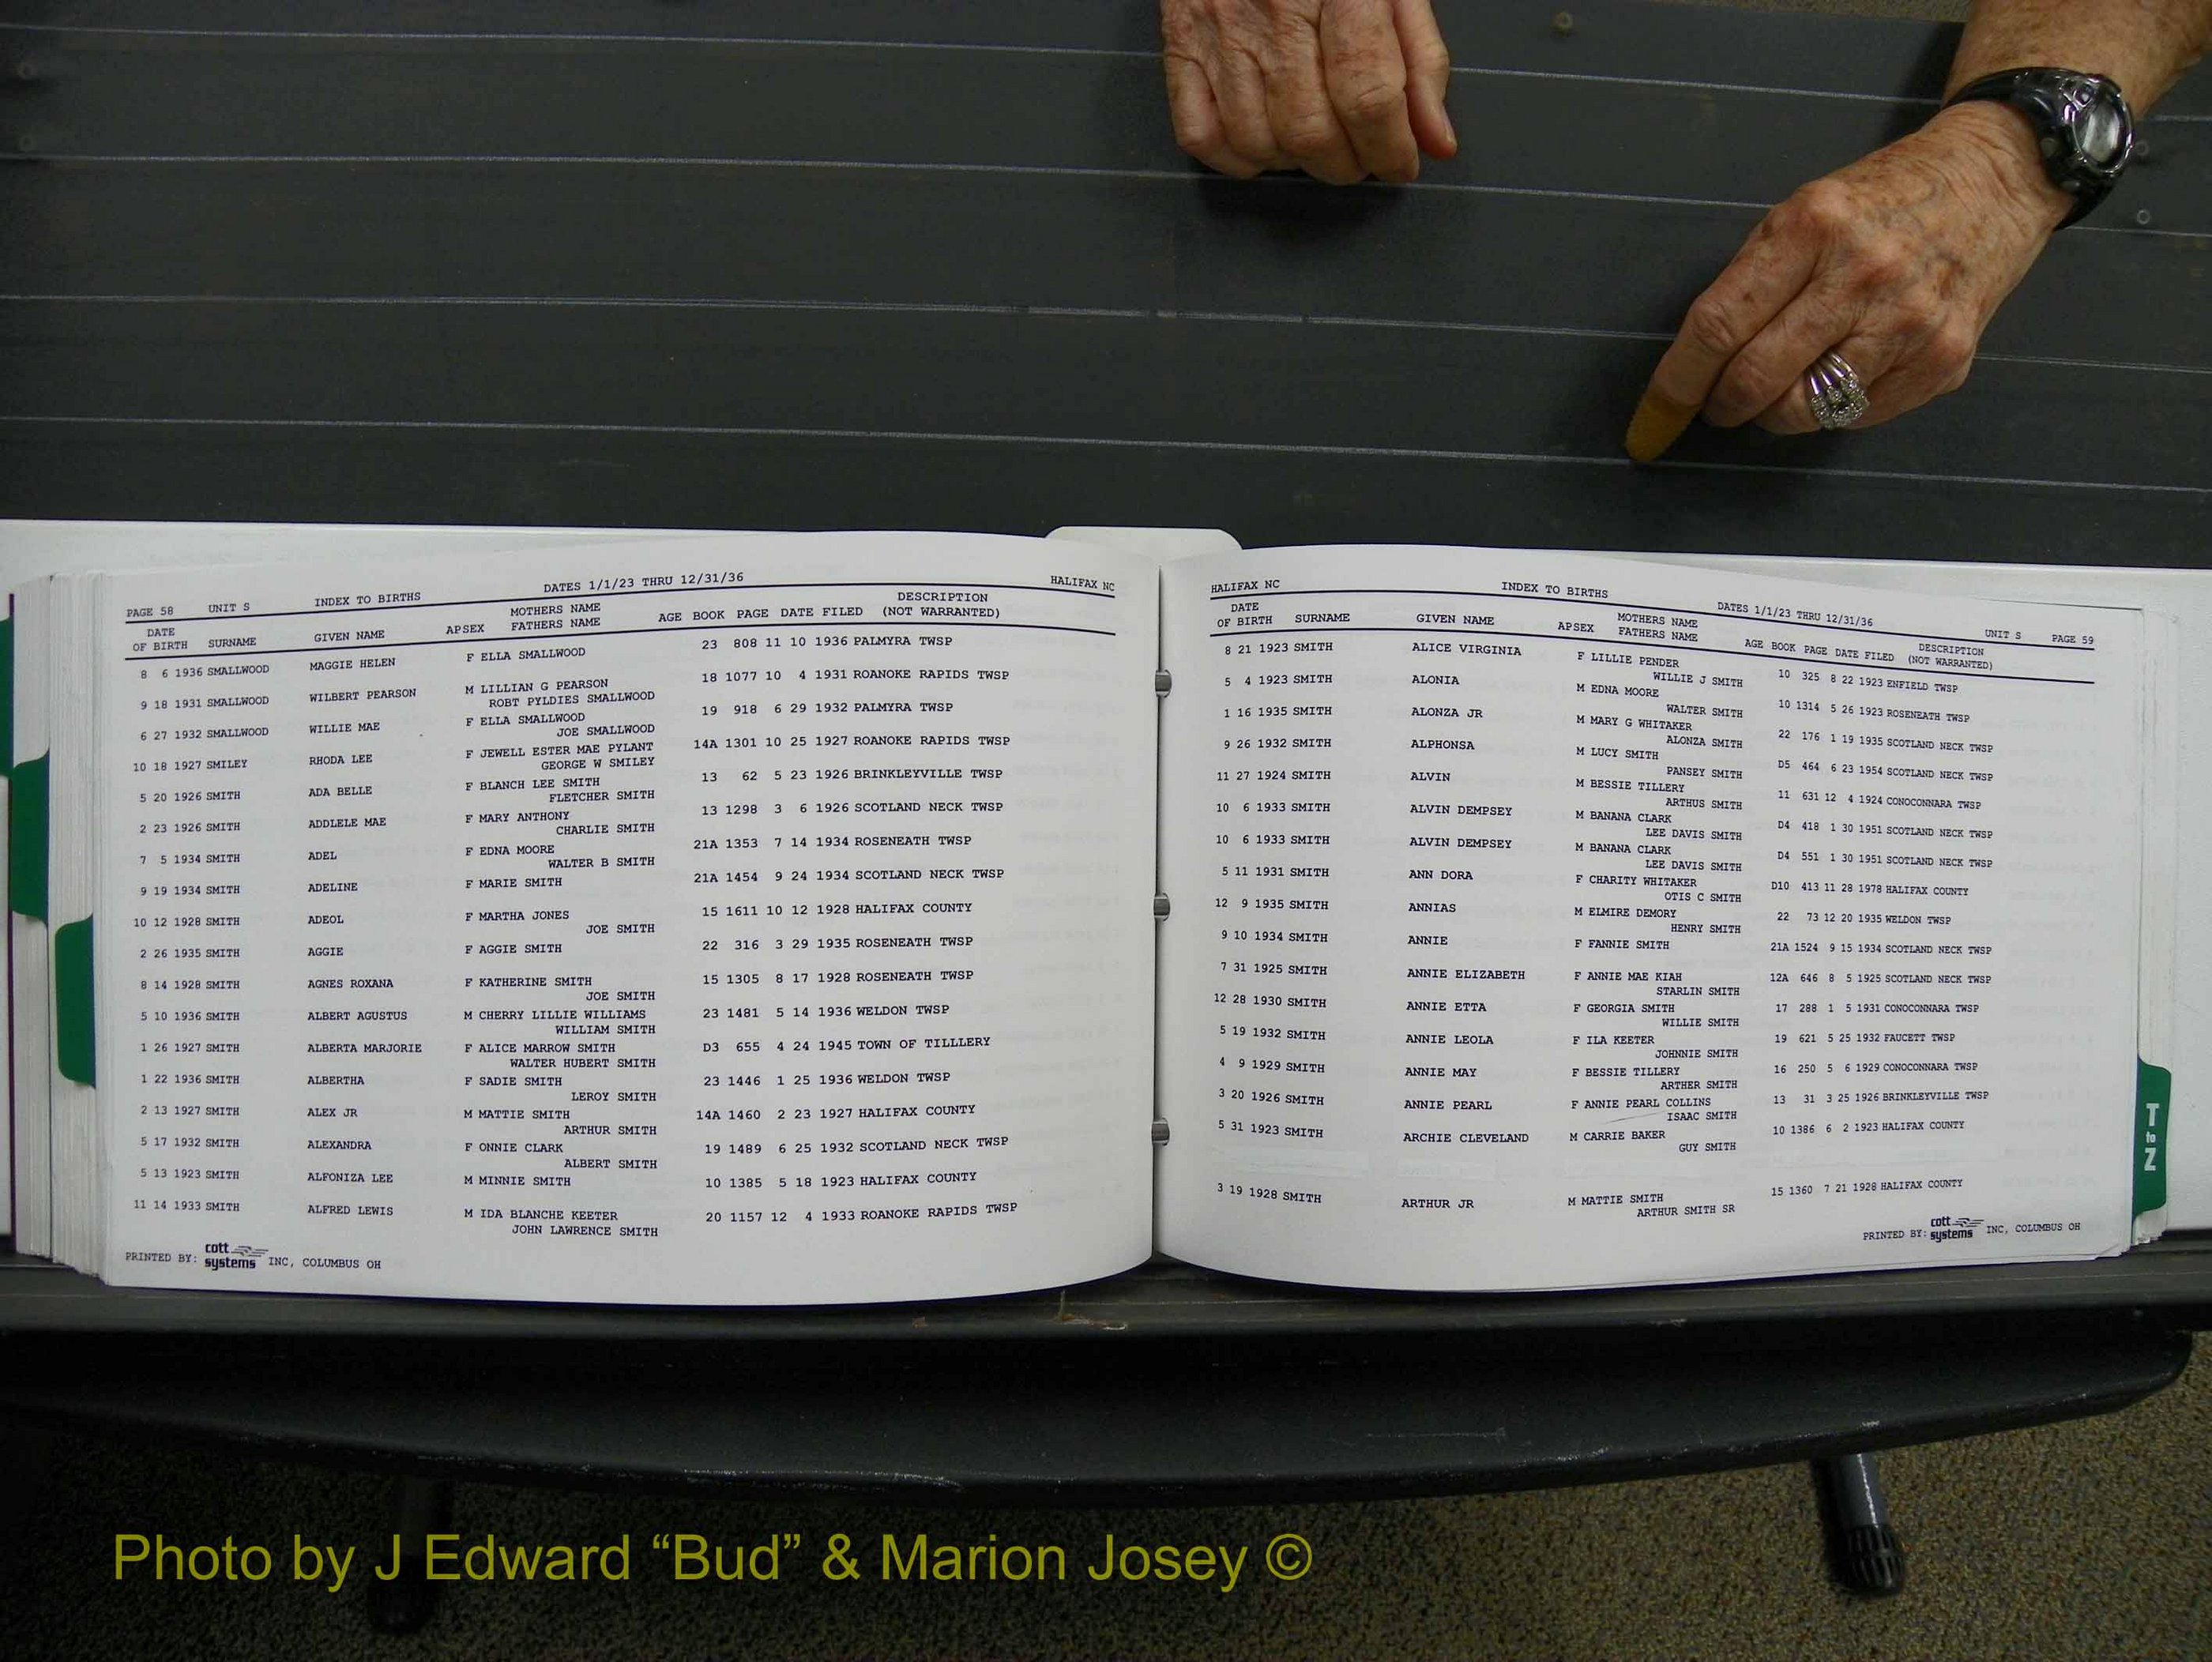 PAGE 58 UNIT S INDEX TO BIRTHS DATES 1/1/23 THRU 12/31/36 HALIFAX NC
DATE OF BIRTH SURNAME GIVEN NAME AP SEX MOTHERS NAME FATHERS NAME AGE BOOK PAGE DATE FILED DESCRIPTION (NOT WARRANTED)
8 6 1936 SMALLWOOD MAGGIE HELEN F ELLA SMALLWOOD 23 808 11 10 1936 PALMYRA TWSP
9 18 1931 SMALLWOOD WILBERT PEARSON M LILLIAN G PEARSON 18 1077 10 4 1931 ROANOKE RAPIDS TWSP
ROBT PYLDIES SMALLWOOD
6 27 1932 SMALLWOOD WILLIE MAE F ELLA SMALLWOOD 19 918 6 29 1932 PALMYRA TWSP
JOE SMALLWOOD
10 18 1927 SMILEY RHODA LEE F JEWELL ESTER MAE PYLANT 14A 1301 10 25 1927 ROANOKE RAPIDS TWSP
GEORGE W SMILEY
5 20 1926 SMITH ADA BELLE F BLANCH LEE SMITH 13 62 5 23 1926 BRINKLEYVILLE TWSP
FLETCHER SMITH
2 23 1926 SMITH ADDLELE MAE F MARY ANTHONY 13 1298 3 6 1926 SCOTLAND NECK TWSP
CHARLIE SMITH
7 5 1934 SMITH ADEL F EDNA MOORE 21A 1353 7 14 1934 ROSENEATH TWSP
WALTER B SMITH
9 19 1934 SMITH ADELINE F MARIE SMITH 21A 1454 9 24 1934 SCOTLAND NECK TWSP
10 12 1928 SMITH ADEOL F MARTHA JONES 15 1611 10 12 1928 HALIFAX COUNTY
JOE SMITH
2 26 1935 SMITH AGGIE F AGGIE SMITH 22 316 3 29 1935 ROSENEATH TWSP
8 14 1928 SMITH AGNES ROXANA F KATHERINE SMITH 15 1305 8 17 1928 ROSENEATH TWSP
JOE SMITH
5 10 1936 SMITH ALBERT AGUSTUS M CHERRY LILLIE WILLIAMS 23 1481 5 14 1936 WELDON TWSP
WILLIAM SMITH
1 26 1927 SMITH ALBERTA MARJORIE F ALICE MARROW SMITH D3 655 4 24 1945 TOWN OF TILLLERY
WALTER HUBERT SMITH
1 22 1936 SMITH ALBERTHA F SADIE SMITH 23 1446 1 25 1936 WELDON TWSP
LEROY SMITH
2 13 1927 SMITH ALEX JR M MATTIE SMITH 14A 1460 2 23 1927 HALIFAX COUNTY
ARTHUR SMITH
5 17 1932 SMITH ALEXANDRA F ONNIE CLARK 19 1489 6 25 1932 SCOTLAND NECK TWSP
ALBERT SMITH
5 13 1923 SMITH ALFONIZA LEE M MINNIE SMITH 10 1385 5 18 1923 HALIFAX COUNTY
11 14 1933 SMITH ALFRED LEWIS M IDA BLANCHE KEETER 20 1157 12 4 1933 ROANOKE RAPIDS TWSP
JOHN LAWRENCE SMITH
PRINTED BY: cott systems INC, COLUMBUS OH
HALIFAX NC INDEX TO BIRTHS DATES 1/1/23 THRU 12/31/36 UNIT S PAGE 59
DATE OF BIRTH SURNAME GIVEN NAME AP SEX MOTHERS NAME FATHERS NAME AGE BOOK PAGE DATE FILED DESCRIPTION (NOT WARRANTED)
8 21 1923 SMITH ALICE VIRGINIA F LILLIE PENDER 10 325 8 22 1923 ENFIELD TWSP
WILLIE J SMITH
5 4 1923 SMITH ALONIA M EDNA MOORE 10 1314 5 26 1923 ROSENEATH TWSP
WALTER SMITH
1 16 1935 SMITH ALONZA JR M MARY G WHITAKER 22 176 1 19 1935 SCOTLAND NECK TWSP
ALONZA SMITH
9 26 1932 SMITH ALPHONSA M LUCY SMITH D5 464 6 23 1954 SCOTLAND NECK TWSP
PANSEY SMITH
11 27 1924 SMITH ALVIN M BESSIE TILLERY 11 631 12 4 1924 CONOCONNARA TWSP
ARTHUS SMITH
10 6 1933 SMITH ALVIN DEMPSEY M BANANA CLARK D4 418 1 30 1951 SCOTLAND NECK TWSP
LEE DAVIS SMITH
10 6 1933 SMITH ALVIN DEMPSEY M BANANA CLARK D4 551 1 30 1951 SCOTLAND NECK TWSP
LEE DAVIS SMITH
5 11 1931 SMITH ANN DORA F CHARITY WHITAKER D10 413 11 28 1978 HALIFAX COUNTY
OTIS C SMITH
12 9 1935 SMITH ANNIAS M ELMIRE DEMORY 22 73 12 20 1935 WELDON TWSP
HENRY SMITH
9 10 1934 SMITH ANNIE F FANNIE SMITH 21A 1524 9 15 1934 SCOTLAND NECK TWSP
7 31 1925 SMITH ANNIE ELIZABETH F ANNIE MAE KIAH 12A 646 8 5 1925 SCOTLAND NECK TWSP
STARLIN SMITH
12 28 1930 SMITH ANNIE ETTA F GEORGIA SMITH 17 288 1 5 1931 CONOCONNARA TWSP
WILLIE SMITH
5 19 1932 SMITH ANNIE LEOLA F ILA KEETER 19 621 5 25 1932 FAUCETT TWSP
JOHNNIE SMITH
4 9 1929 SMITH ANNIE MAY F BESSIE TILLERY 16 250 5 6 1929 CONOCONNARA TWSP
ARTHER SMITH
3 20 1926 SMITH ANNIE PEARL F ANNIE PEARL COLLINS 13 31 3 25 1926 BRINKLEYVILLE TWSP
ISAAC SMITH
5 31 1923 SMITH ARCHIE CLEVELAND M CARRIE BAKER 10 1386 6 2 1923 HALIFAX COUNTY
GUY SMITH
3 19 1928 SMITH ARTHUR JR M MATTIE SMITH 15 1360 7 21 1928 HALIFAX COUNTY
ARTHUR SMITH SR
PRINTED BY: cott systems INC, COLUMBUS OH
T to Z
Photo by J Edward “Bud” & Marion Josey ©